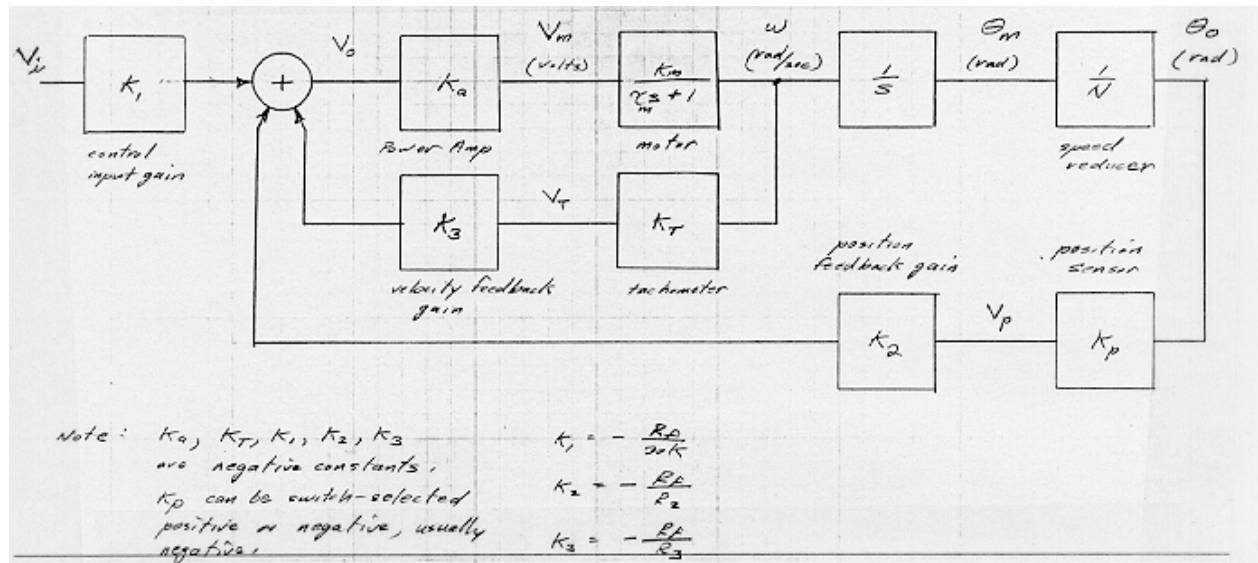 Vi
K1
control
input gain
+
Vo
Ka
Power Amp
Vm
(volts)
Km
τm s + 1
motor
ω
(rad/sec)
1
s
θm
(rad)
1
N
speed
reducer
θo
(rad)
K3
velocity feedback
gain
VT
KT
tachometer
position
feedback gain
K2
Vp
position
sensor
Kp
Note: Ka, KT, K1, K2, K3
are negative constants.
Kp can be switch-selected
positive or negative, usually
negative.
K1 = - Rf/20K
K2 = - Rf/R2
K3 = - Rf/R3